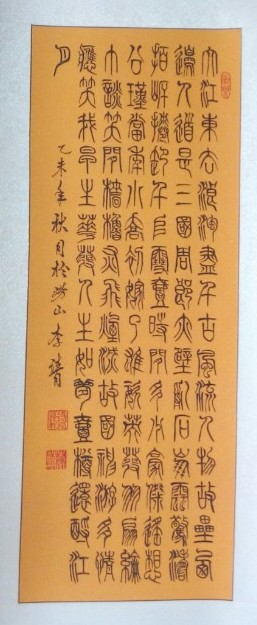 大江東去浪淘盡千古風流人物故壘西
邊人道是三國周郎赤壁亂石崩雲驚濤
拍岸捲起千堆雪壹時間多少豪傑遙想
公瑾當年小喬初嫁了雄姿英發羽扇綸
巾談笑間檣櫓灰飛煙滅故國神游多情
應笑我早生華髮人生如夢壹樽還酹江
月
乙未年秋月於嶗山李